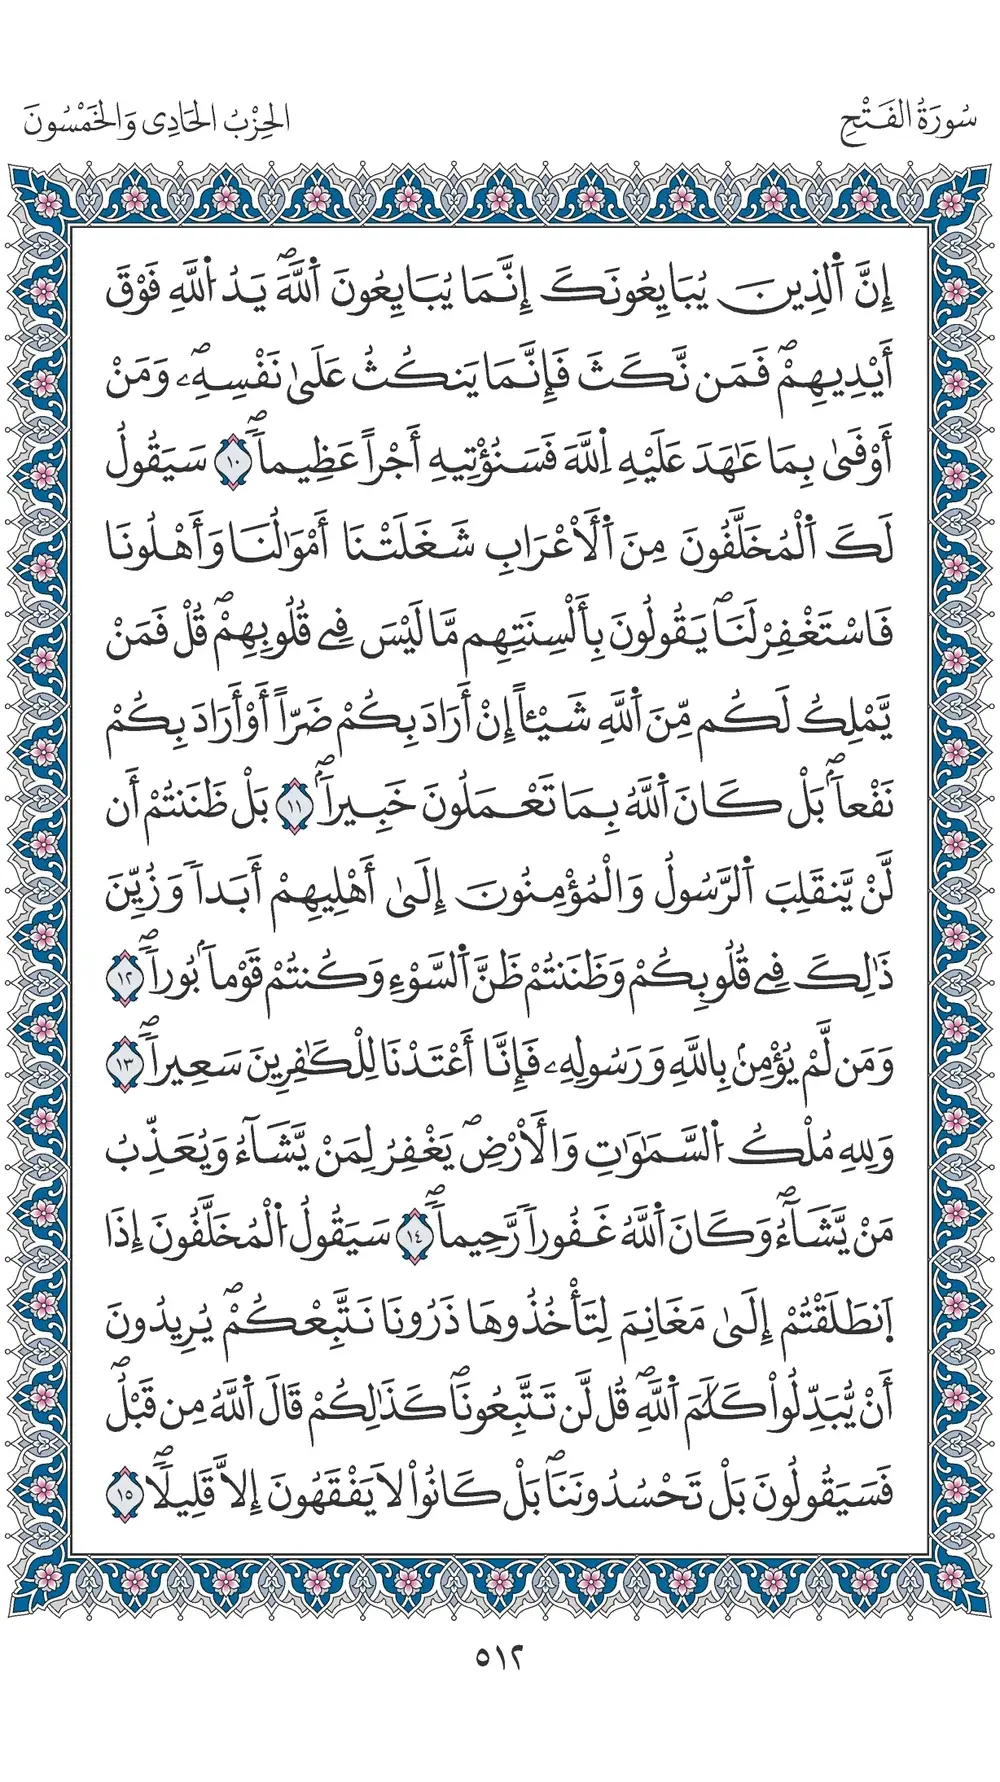 سُورَةُ الفَتْحِ
الحِزْبُ الحَادِي وَالخَمْسُونَ
إِنَّ ٱلذِينَ يُبَايِعُونَكَ إِنَّمَا يُبَايِعُونَ ٱللَّهَۖ يَدُ ٱللَّهِ فَوْقَ
أَيْدِيهِمْۖ فَمَن نَّكَثَ فَإِنَّمَا يَنكُثُ عَلَىٰ نَفْسِهِۦۖ وَمَنْ
أَوْفَىٰ بِمَا عَٰهَدَ عَلَيْهِ اِ۬للَّهَ فَسَنُؤْتِيهِ أَجْراً عَظِيماًۖ ١٠ سَيَقُولُ
لَكَ ٱلْمُخَلَّفُونَ مِنَ ٱلْأَعْرَابِ شَغَلَتْنَا أَمْوَٰلُنَا وَأَهْلُونَا
فَاسْتَغْفِرْ لَنَاۖ يَقُولُونَ بِأَلْسِنَتِهِم مَّا لَيْسَ فِے قُلُوبِهِمْۖ قُلْ فَمَنْ
يَّمْلِكُ لَكُم مِّنَ ٱللَّهِ شَيْـٔاً إِنْ أَرَادَ بِكُمْ ضَرّاً أَوْ أَرَادَ بِكُمْ
نَفْعاَۢۖ بَلْ كَانَ ٱللَّهُ بِمَا تَعْمَلُونَ خَبِيراَۢۖ ١١ بَلْ ظَنَنتُمْ أَن
لَّنْ يَّنقَلِبَ ٱلرَّسُولُ وَالْمُؤْمِنُونَ إِلَىٰ أَهْلِيهِمْ أَبَداً وَزُيِّنَ
ذَٰلِكَ فِے قُلُوبِكُمْ وَظَنَنتُمْ ظَنَّ ٱلسَّوْءِ وَكُنتُمْ قَوْماَۢ بُوراًۖ ١٢
وَمَن لَّمْ يُؤْمِنۢ بِاللَّهِ وَرَسُولِهِۦ فَإِنَّا أَعْتَدْنَا لِلْكَٰفِرِينَ سَعِيراًۖ ١٣
وَلِلهِ مُلْكُ ٱلسَّمَٰوَٰتِ وَالْأَرْضِۖ يَغْفِرُ لِمَنْ يَّشَآءُ وَيُعَذِّبُ
مَنْ يَّشَآءُۖ وَكَانَ ٱللَّهُ غَفُوراً رَّحِيماًۖ ١٤ سَيَقُولُ ٱلْمُخَلَّفُونَ إِذَا
اَ۪نطَلَقْتُمْ إِلَىٰ مَغَانِمَ لِتَأْخُذُوهَا ذَرُونَا نَتَّبِعْكُمْۖ يُرِيدُونَ
أَنْ يُّبَدِّلُواْ كَلَٰمَ ٱللَّهِۖ قُل لَّن تَتَّبِعُونَاۖ كَذَٰلِكُمْ قَالَ ٱللَّهُ مِن قَبْلُۖ
فَسَيَقُولُونَ بَلْ تَحْسُدُونَنَاۖ بَلْ كَانُواْ لَا يَفْقَهُونَ إِلَّا قَلِيلاًۖ ١٥
٥١٢